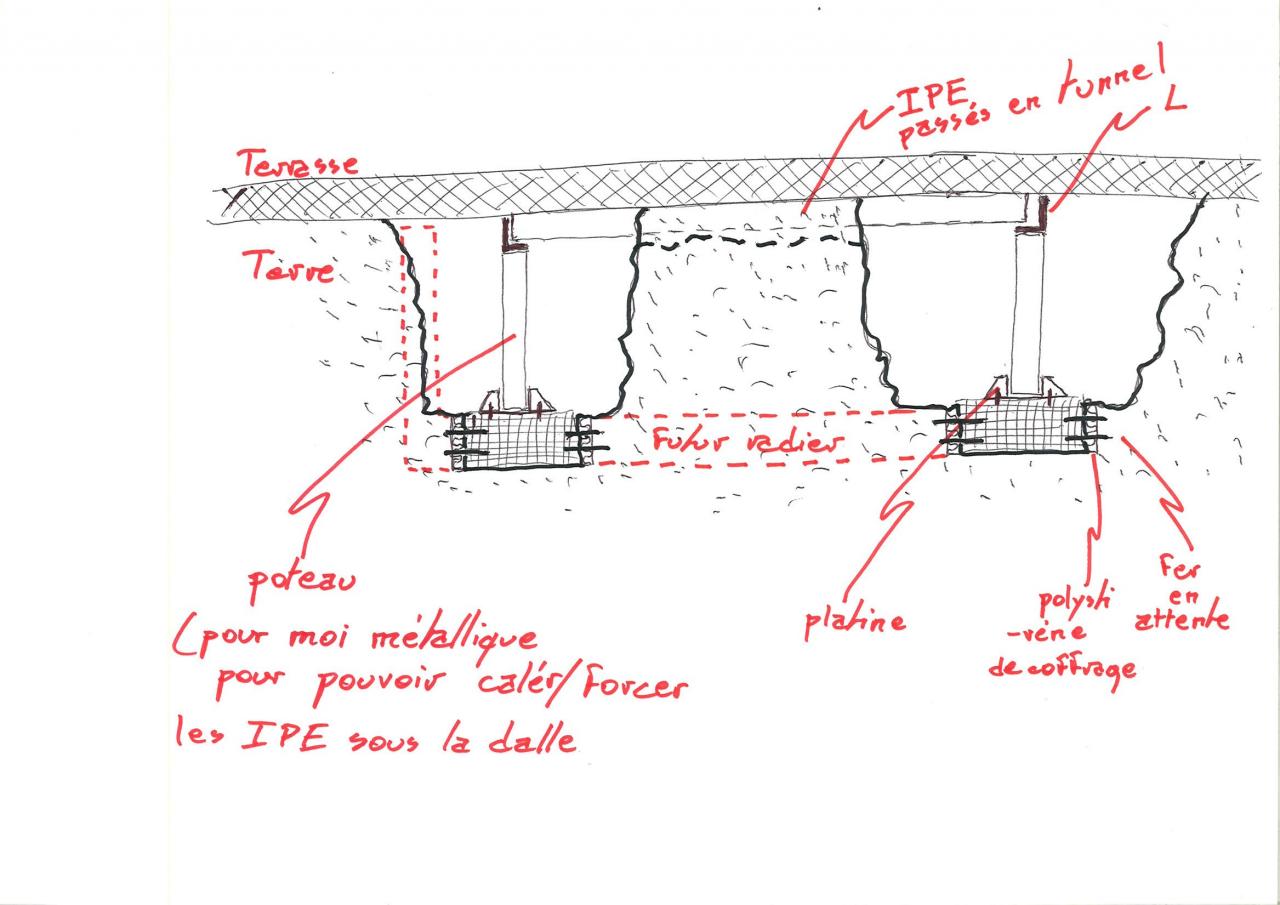 IPE
passés en tunnel
L
Terrasse
Terre
Futur radier
poteau
(pour moi métallique
pour pouvoir calér/forcer
les IPE sous la dalle
platine
polysti
-rène
de coffrage
Fer
en
attente